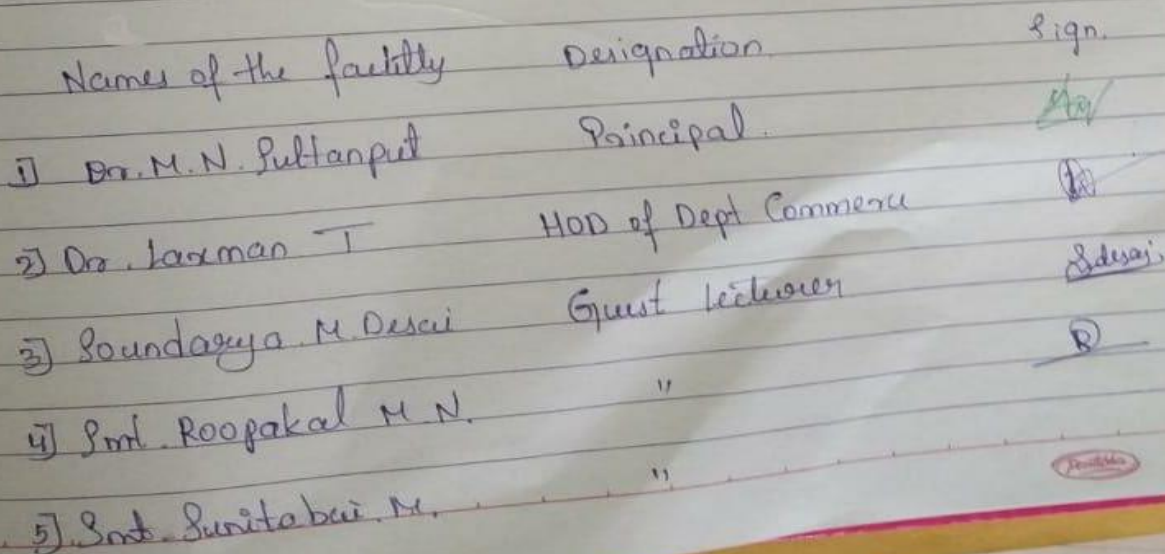 Names of the facultly Designation Sign.
1] Dr. M. N. Sultanput Principal.
2] Dr. Laxman T HOD of Dept Commerce
3] Soundarya. M. Desai Guest Lecturer Sdesai.
4] Smt. Roopakal M N. "
5]. Smt. Sunitabai. M. "